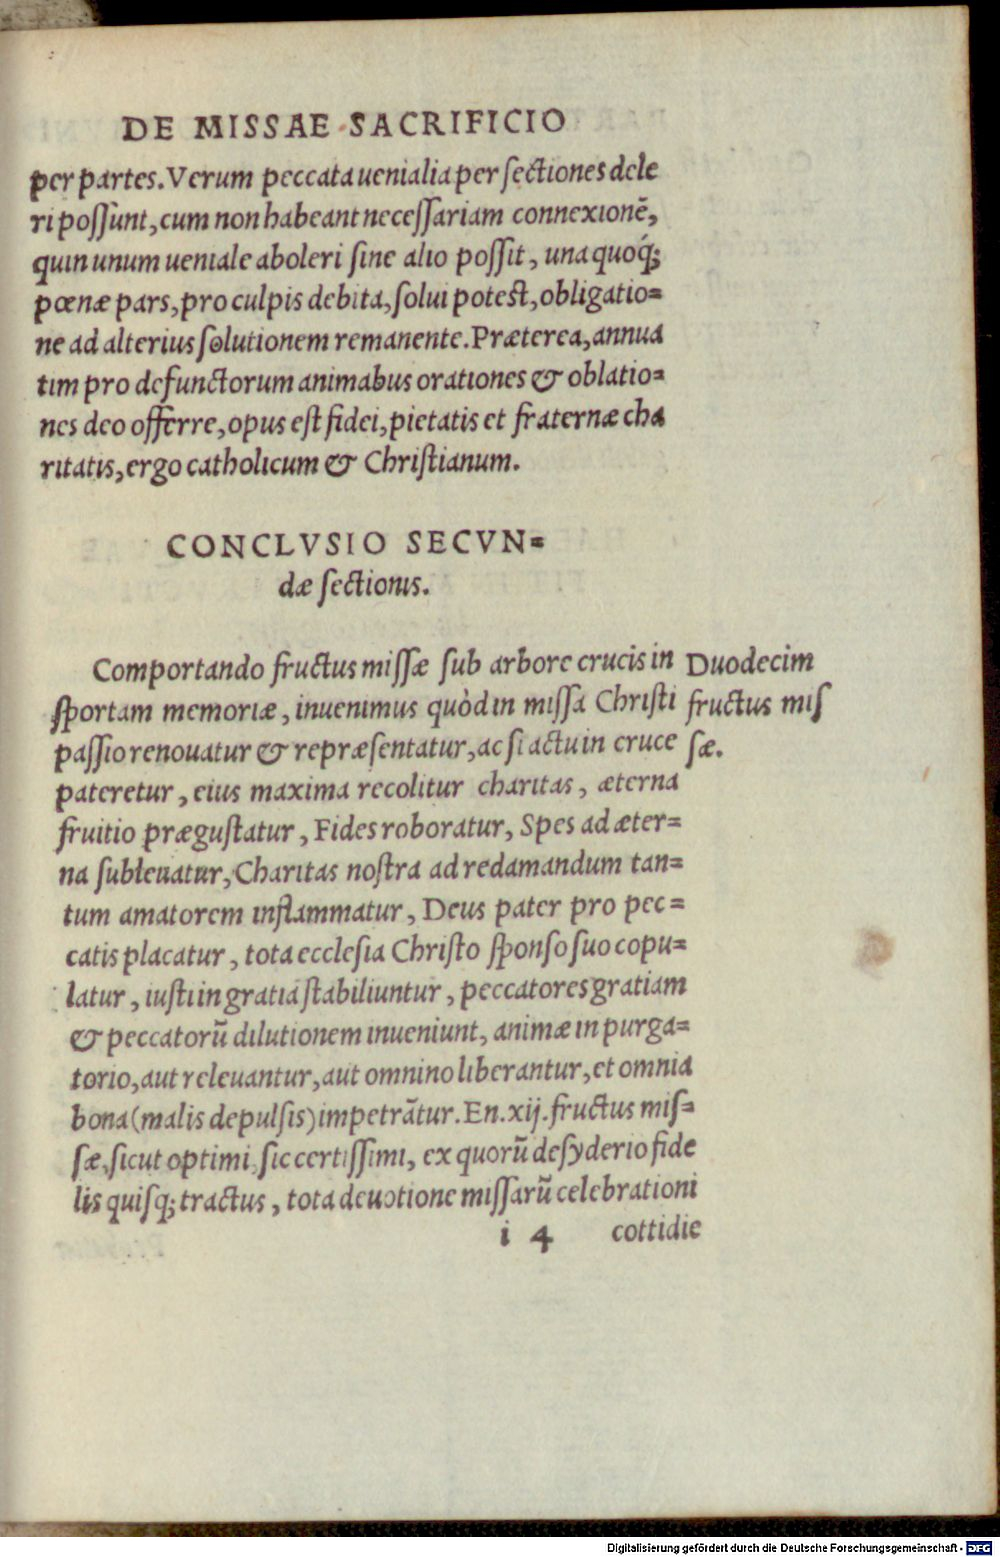 DE MISSAE SACRIFICIO
per partes. Verum peccata uenialia per sectiones dele
ri possunt, cum non habeant necessariam connexionē,
quin unum ueniale aboleri sine alio possit, una quoq́;
pœnæ pars, pro culpis debita, solui potest, obligatio=
ne ad alterius solutionem remanente. Præterea, annua
tim pro defunctorum animabus orationes & oblatio=
nes deo offerre, opus est fidei, pietatis et fraternæ cha
ritatis, ergo catholicum & Christianum.
CONCLVSIO SECVN=
dæ sectionis.
Comportando fructus missæ sub arbore crucis in
sportam memoriæ, inuenimus quòd in missa Christi
passio renouatur & repræsentatur, ac si actu in cruce
pateretur, eius maxima recolitur charitas, æterna
fruitio prægustatur, Fides roboratur, Spes ad æter=
na subleuatur, Charitas nostra ad redamandum tan=
tum amatorem inflammatur, Deus pater pro pec=
catis placatur, tota ecclesia Christo sponso suo copu=
latur, iusti in gratia stabiliuntur, peccatores gratiam
& peccatorū dilutionem inueniunt, animæ in purga=
torio, aut releuantur, aut omnino liberantur, et omnia
bona (malis depulsis) impetrātur. En. xij. fructus mis=
sæ, sicut optimi, sic certissimi, ex quorū desyderio fide
lis quisq; tractus, tota deuotione missarū celebrationi
i 4 cottidie
Duodecim
fructus mis
sæ.
Digitalisierung gefördert durch die Deutsche Forschungsgemeinschaft - DFG